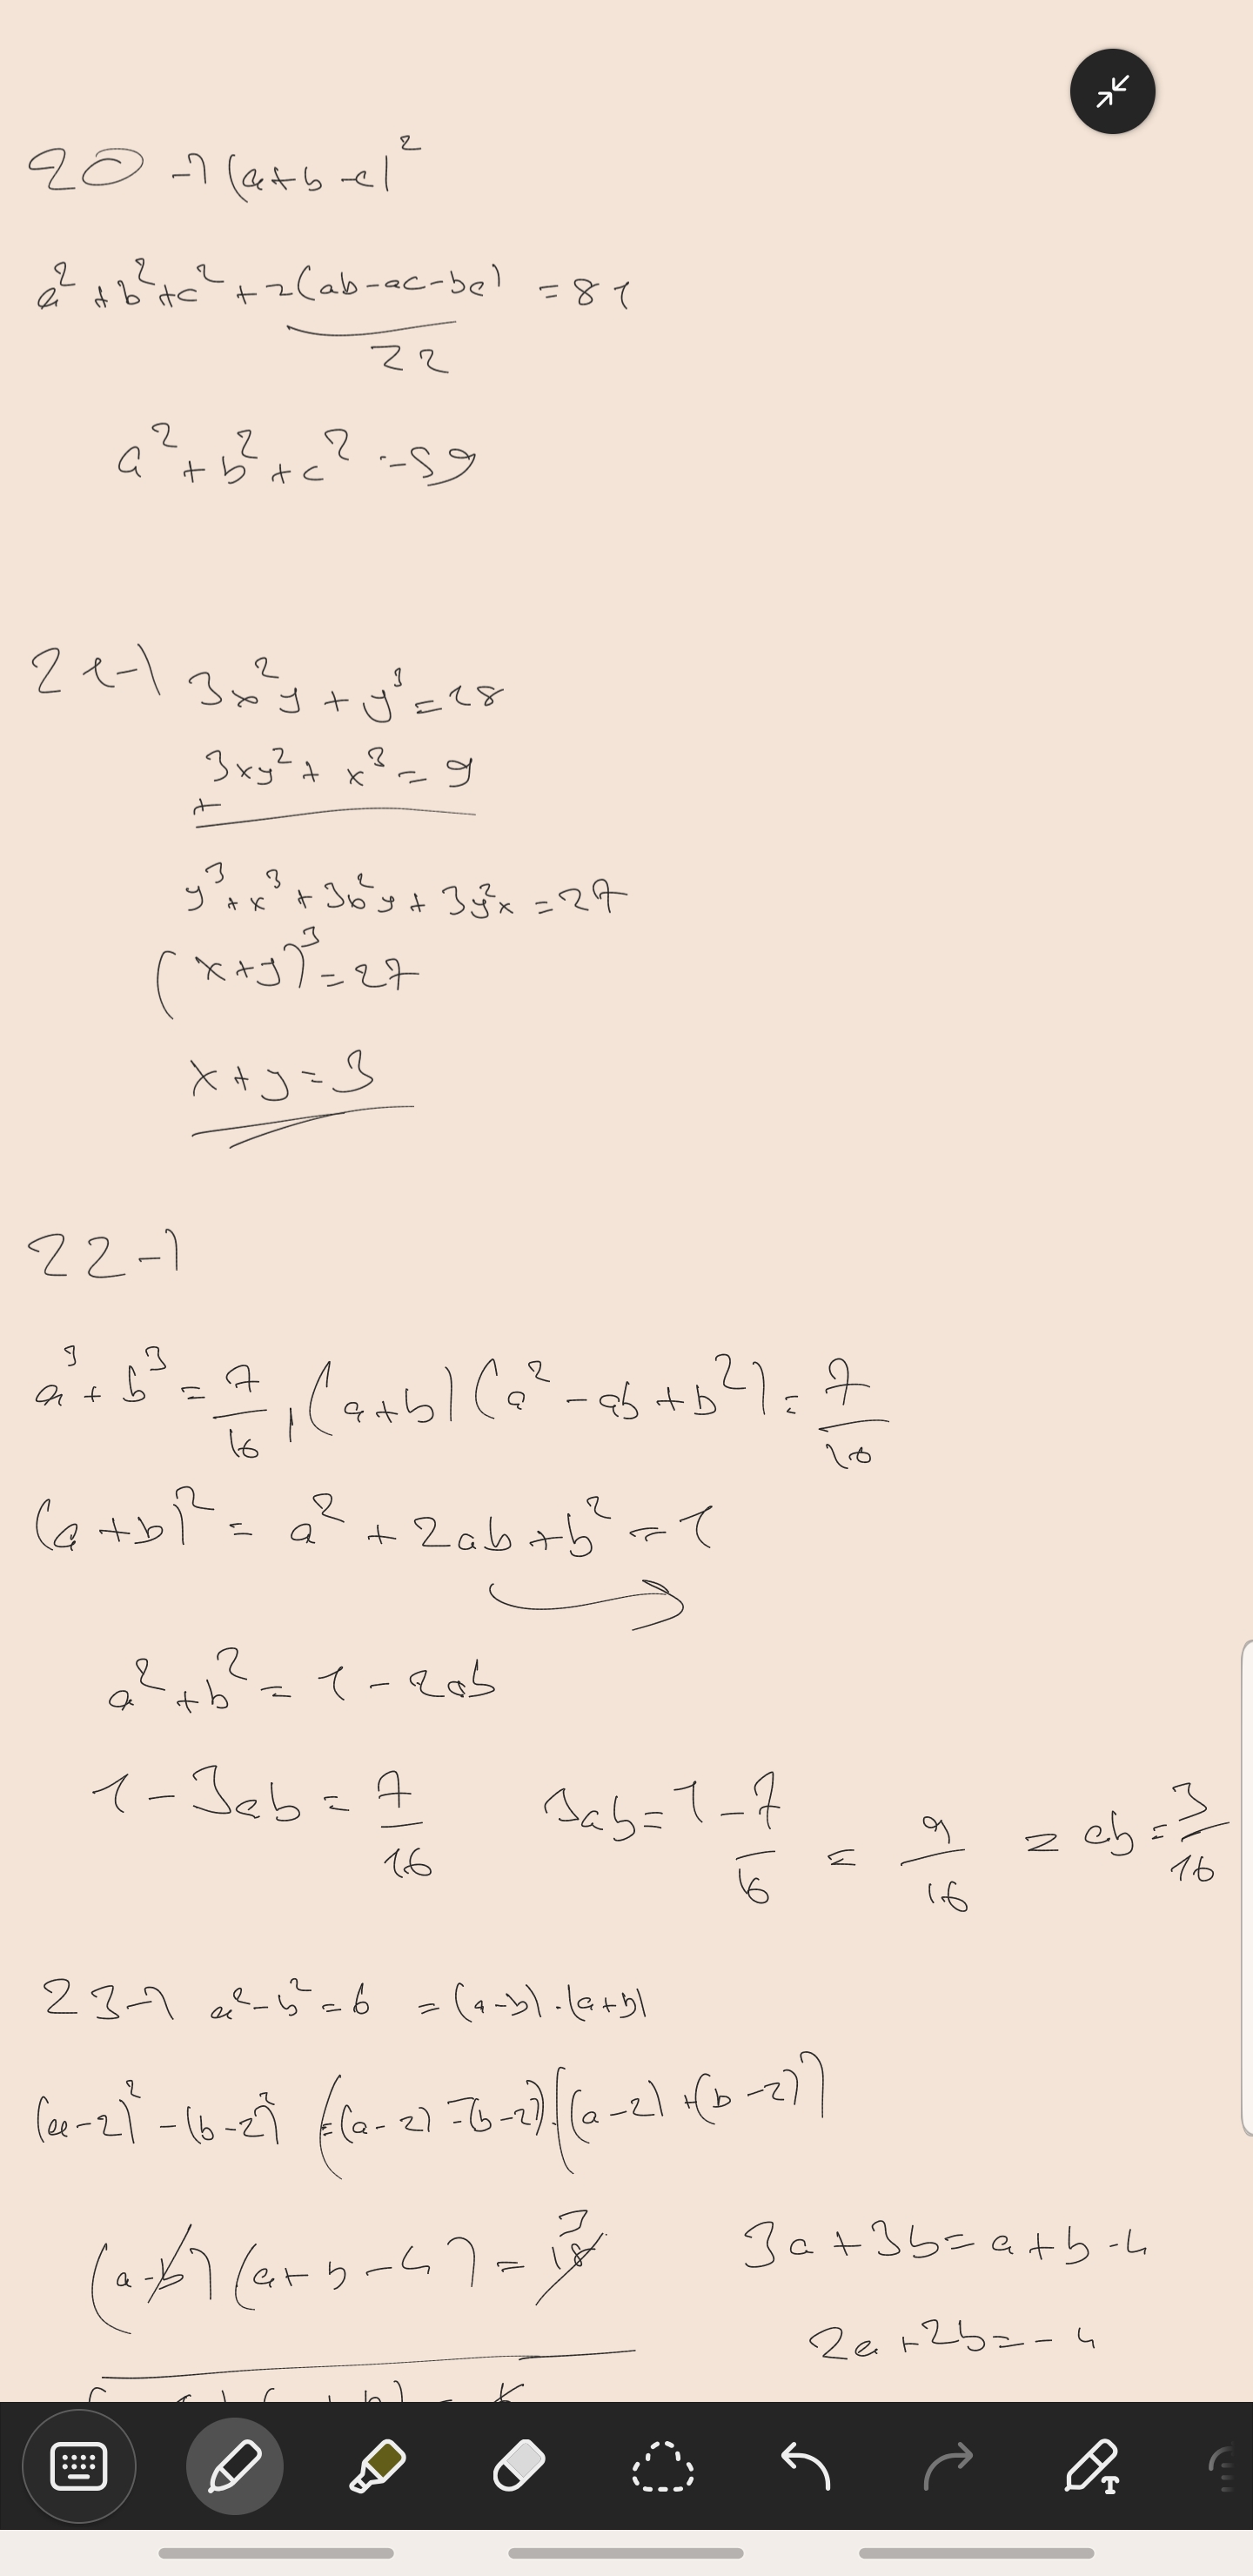 20-) (a+b-c)²
a²+b²+c²+2(ab-ac-bc) = 81
22
a²+b²+c² = 59
21-) 3x²y + y³ = 18
3xy² + x³ = 9
+
y³+x³+3x²y+3y²x = 27
(x+y)³ = 27
x+y = 3
22-)
a³+b³ = 7/16, (a+b)(a²-ab+b²) = 7/16
(a+b)² = a²+2ab+b² = 1
a²+b² = 1-2ab
1-3ab = 7/16 3ab = 1-7/16 = 9/16 = ab = 3/16
23-) a²-b² = 6 = (a-b).(a+b)
(a-2)²-(b-2)² = ((a-2)-(b-2)).((a-2)+(b-2))
(a-b)(a+b-4) = 18 3 3a+3b = a+b-4
2a+2b = -4